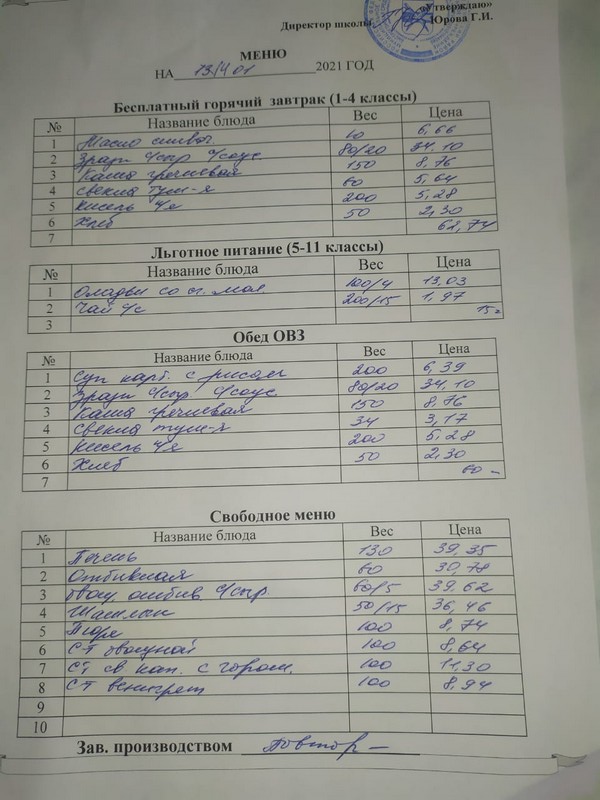 «Утверждаю»
Директор школы Юрова Г.И.
МЕНЮ
НА 2021 ГОД
Бесплатный горячий завтрак (1-4 классы)
№ Название блюда Вес Цена
1 Масло слив. 10 6,66
2 Зразы с/сыр с/соус. 80/20 34,10
3 Каша гречневая 150 8,76
4 Свекла туш-я 60 5,64
5 Кисель 200 5,28
6 Хлеб 50 2,30
7 62,74
Льготное питание (5-11 классы)
№ Название блюда Вес Цена
1 Оладьи со сг. мол 100/4 13,03
2 Чай с/с 200/15 1,97
3 15
Обед ОВЗ
№ Название блюда Вес Цена
1 Суп карт. с рисом 200 6,39
2 Зразы с/сыр с/соус. 80/20 34,10
3 Каша гречневая 150 8,76
4 Свекла туш-я 34 3,17
5 Кисель 200 5,28
6 Хлеб 50 2,30
7 60 -
Свободное меню
№ Название блюда Вес Цена
1 Печень 130 39,35
2 Отбивная 60 30,78
3 отбив с/сыр 60/5 39,62
4 Шашлык 50/15 36,46
5 Пюре 100 8,74
6 СТ овощной 100 8,64
7 СТ св кап. с горош. 100 11,30
8 СТ венигрет 100 8,94
9
10
Зав. производством